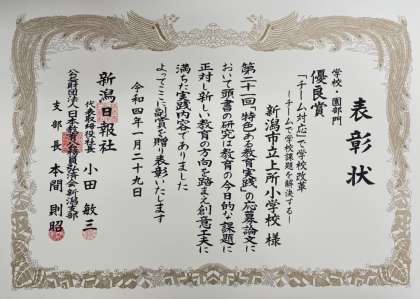 表彰状
学校・園部門
優良賞
「チーム対応」で学校改革
―チームで学校課題を解決する―
新潟市立上所小学校 様
第二十一回「特色ある教育実践」の応募論文に
おいて頭書の研究は教育の今日的な課題に
正対し新しい教育の方向を踏まえ創意工夫に
満ちた実践内容でありました
よってここに副賞を贈り表彰いたします
令和四年一月二十九日
新潟日報社
代表取締役社長 小田敏三
公益財団法人日本教育公務員弘済会新潟支部
支部長 本間則昭